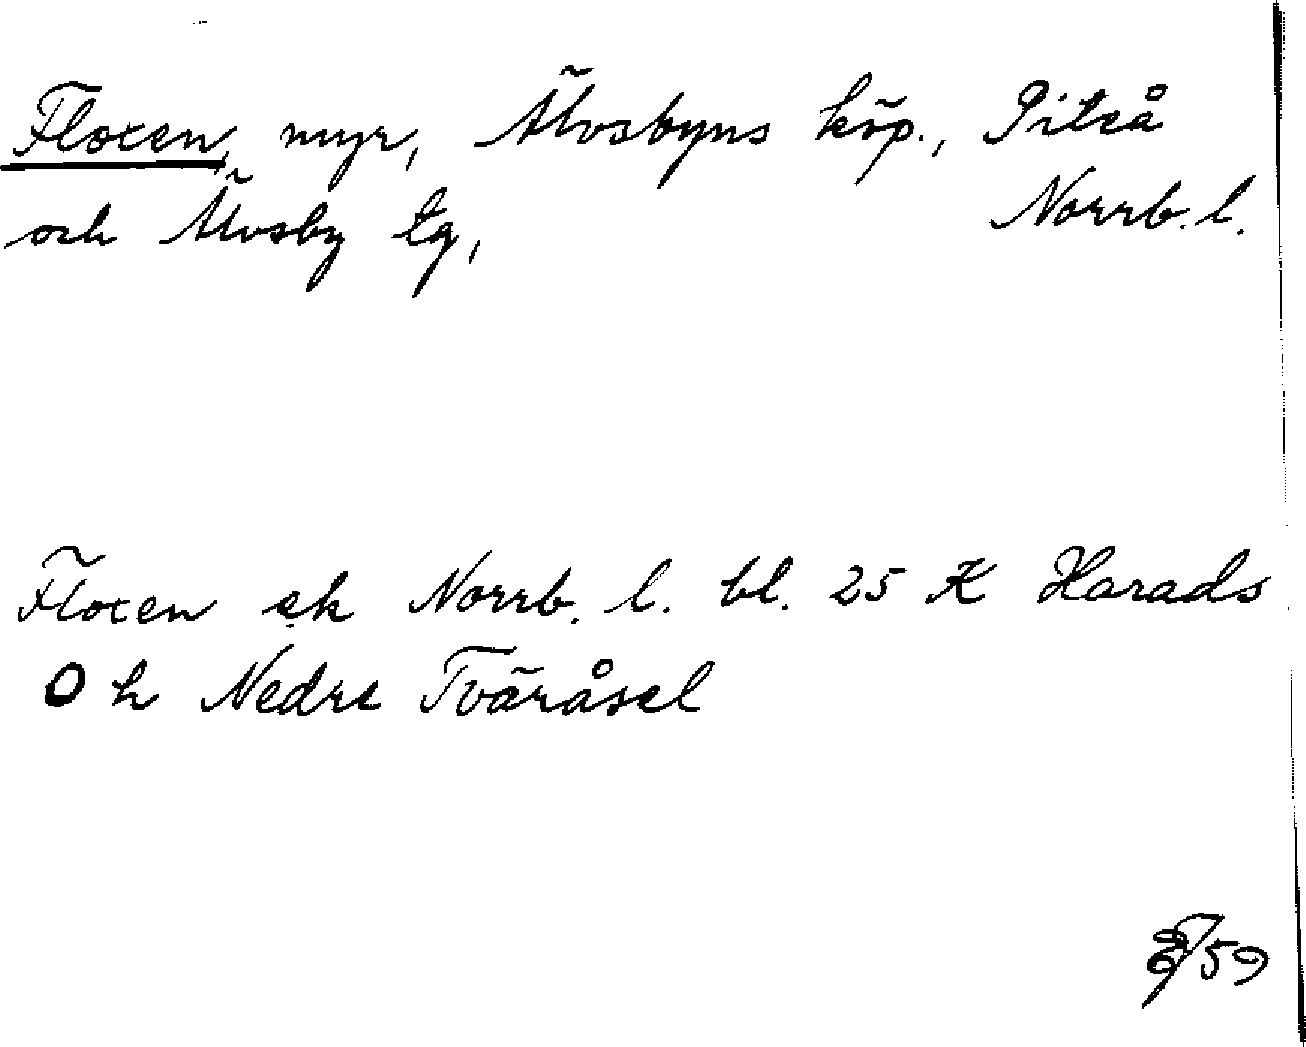 Floxen, myr, Älvsbyns köp., Piteå
och Älvsby tg, Norrb. l.
Floxen ek Norrb. l. bl. 25 K Harads
O h Nedre Tväråsel
59